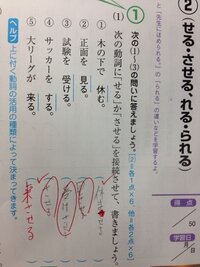 ②(せる・させる、れる・られる)
・「先生にほめられる。」の「られる」の違いなどを学習するよ。
得点
50
学習日
月
日
1 次の(1)~(3)の問いに答えましょう。〔(2)=各1点×6、他=各2点×6〕
(1) 次の動詞に「せる」か「させる」を接続させて、書きましょう。
① 木の下で 休む。
② 正面を 見る。
③ 試験を 受ける。
④ サッカーを する。
⑤ 大リーグが 来る。
ヘルプ 上に付く動詞の活用の種類によって決まってきます。
来させる